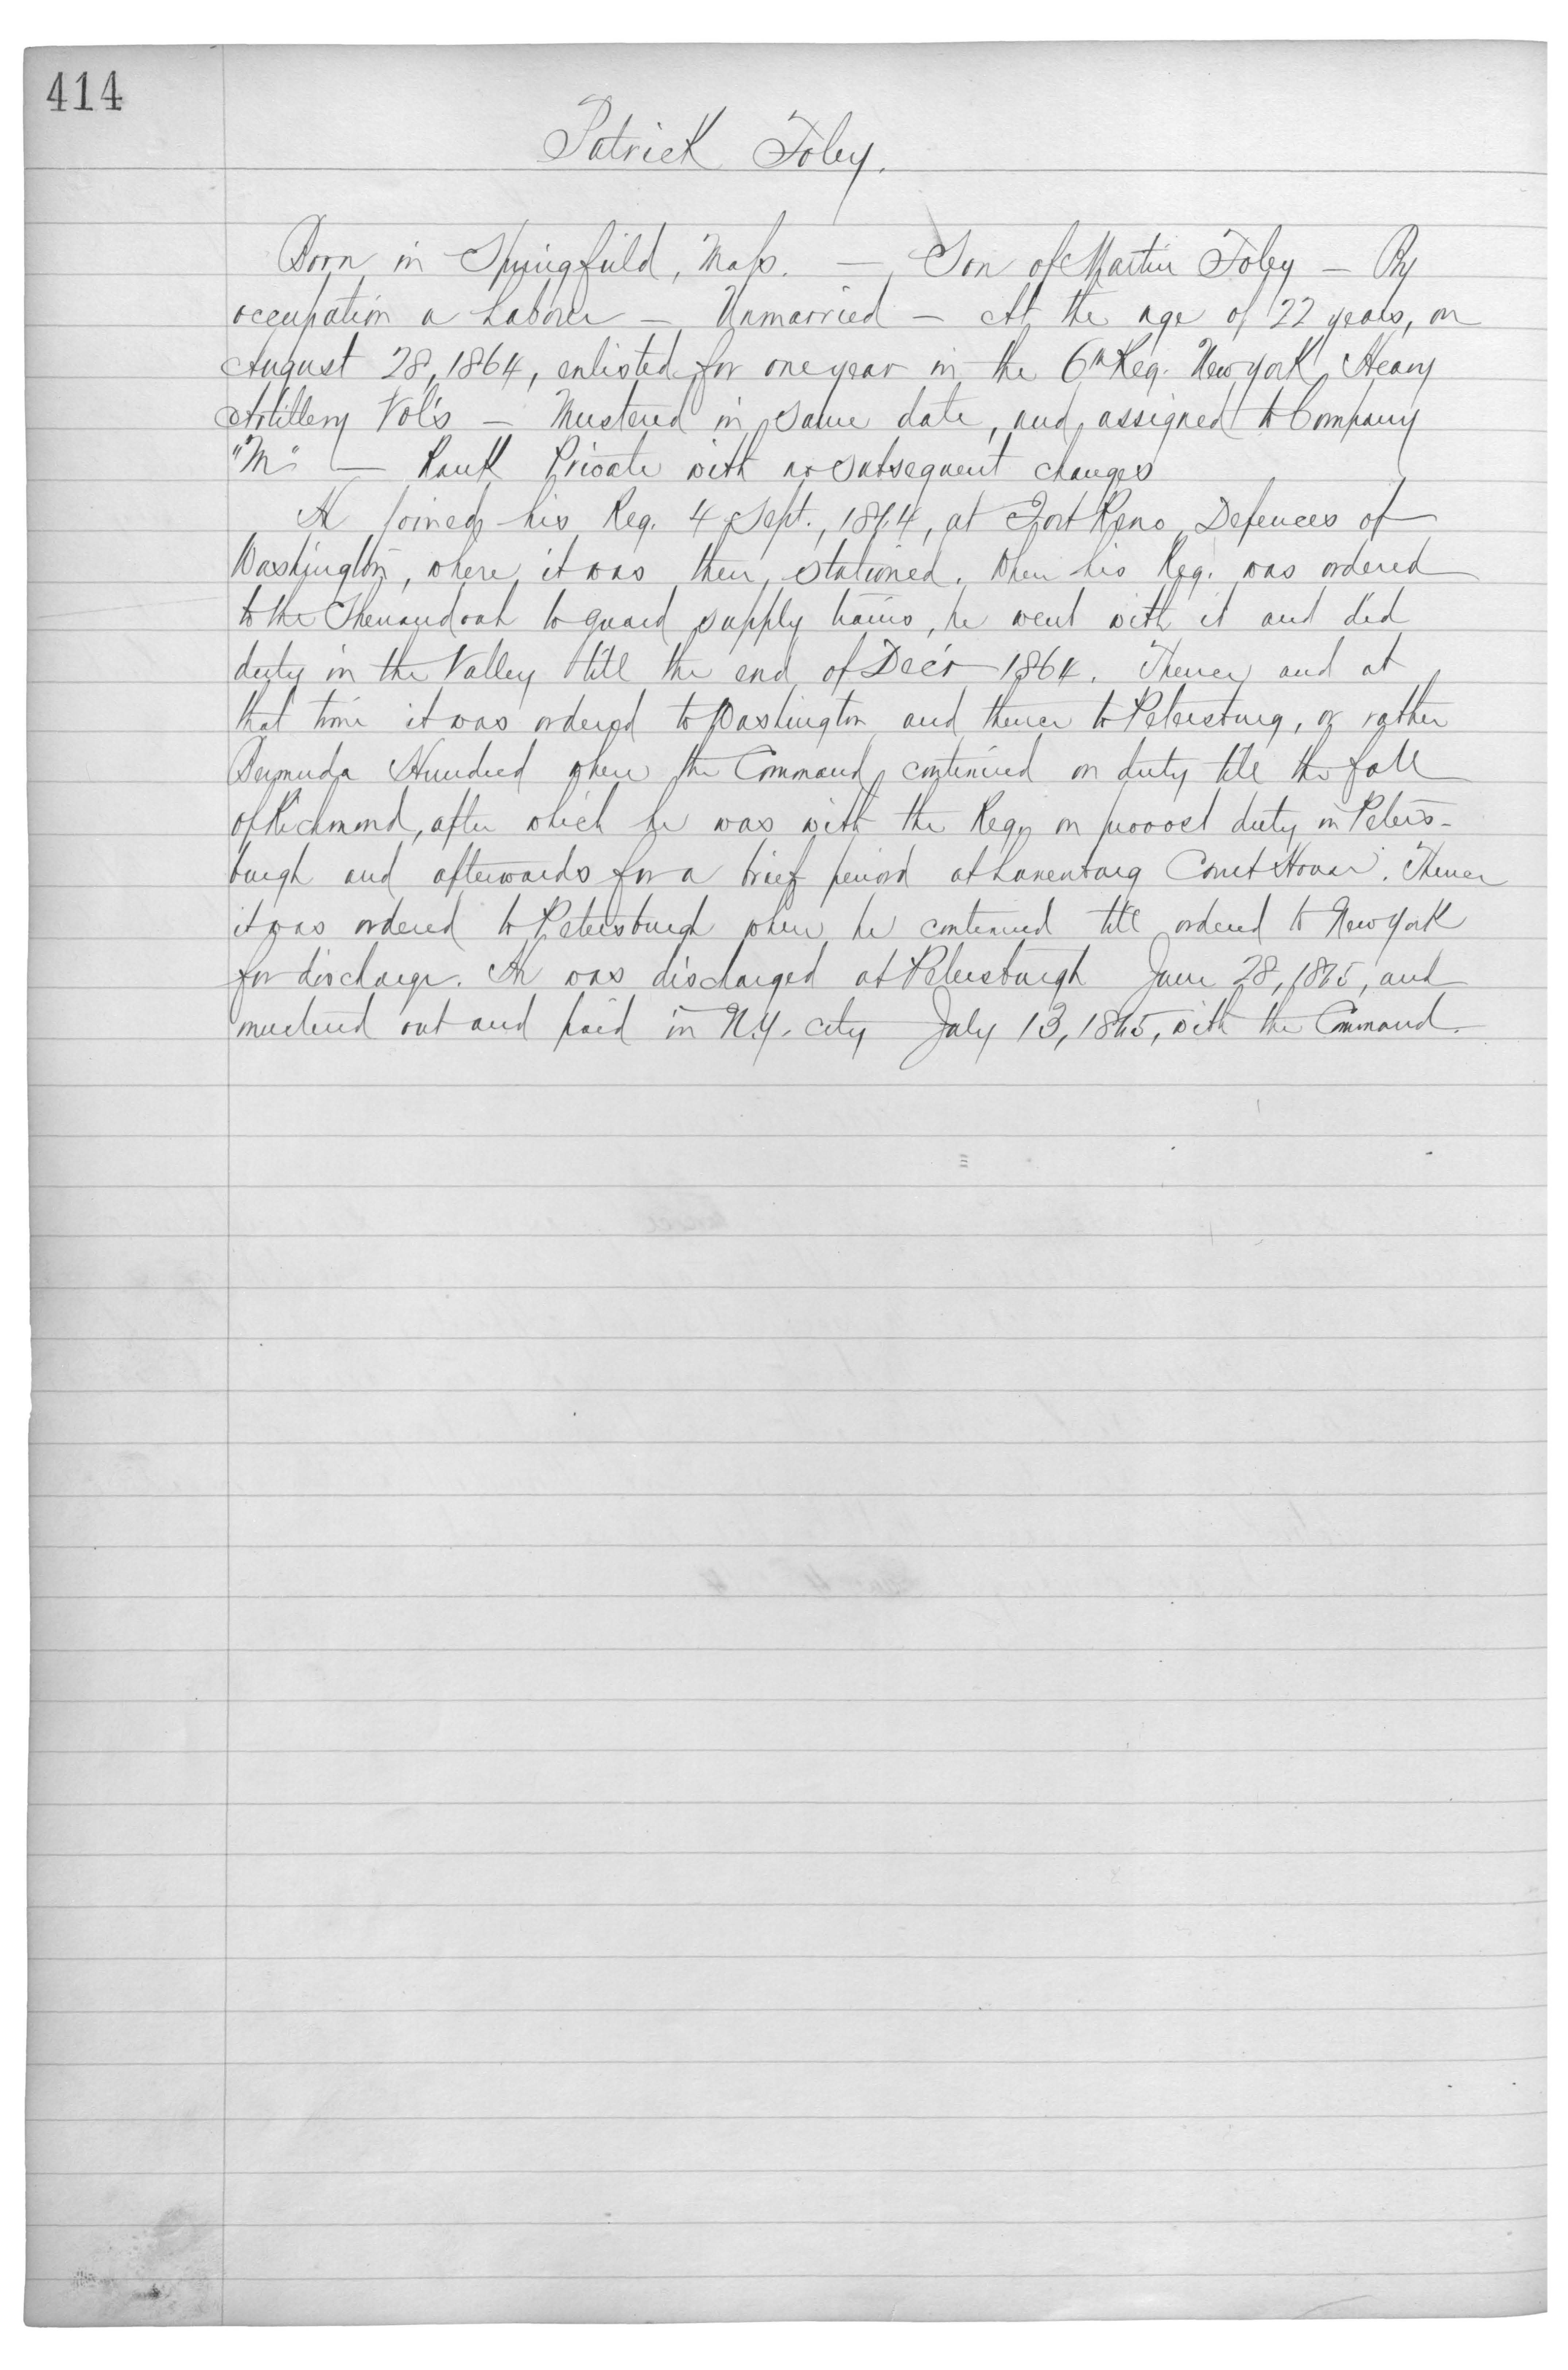 414
Patrick Foley.
Born in Springfield, Mass. — Son of Martin Foley — By
occupation a Laborer — Unmarried — At the age of 22 years, on
August 28, 1864, enlisted for one year in the 6th Reg. New York Heavy
Artillery Vol's — Mustered in same date, and assigned to Company
"M" — Rank Private with no subsequent changes
He joined his Reg. 4 Sept., 1864, at Fort Reno, Defences of
Washington, where it was then stationed. When his Reg. was ordered
to the Shenandoah to guard supply trains, he went with it and did
duty in the Valley till the end of Dec'r 1864. Thence and at
that time it was ordered to Washington and thence to Petersburg, or rather
Bermuda Hundred where the Command continued on duty till the fall
of Richmond, after which he was with the Reg. on provost duty in Peters-
burgh and afterwards for a brief period at Lunenburg Court House. Thence
it was ordered to Petersburgh where he continued till ordered to New York
for discharge. He was discharged at Petersburgh June 28, 1865, and
mustered out and paid in N.Y. city July 13, 1865, with the Command.